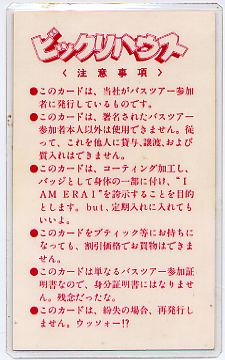 ビックリハウス
〈注意事項〉
●このカードは、当社がバスツアー参加
者に発行しているものです。
●このカードは、署名されたバスツアー
参加者本人以外は使用できません。従
って、これを他人に貸与、譲渡、および
質入れはできません。
●このカードは、コーティング加工し、
バッジとして身体の一部に付け、“I
AM ERAI”を誇示することを目的
とします。but、定期入れに入れても
いいよ。
●このカードをブティック等にお持ちに
なっても、割引価格でお買物はできま
せん。
●このカードは単なるバスツアー参加証
明書なので、身分証明書にはなりませ
ん。残念だったな。
●このカードは、紛失の場合、再発行し
ません。ウッソォー!?